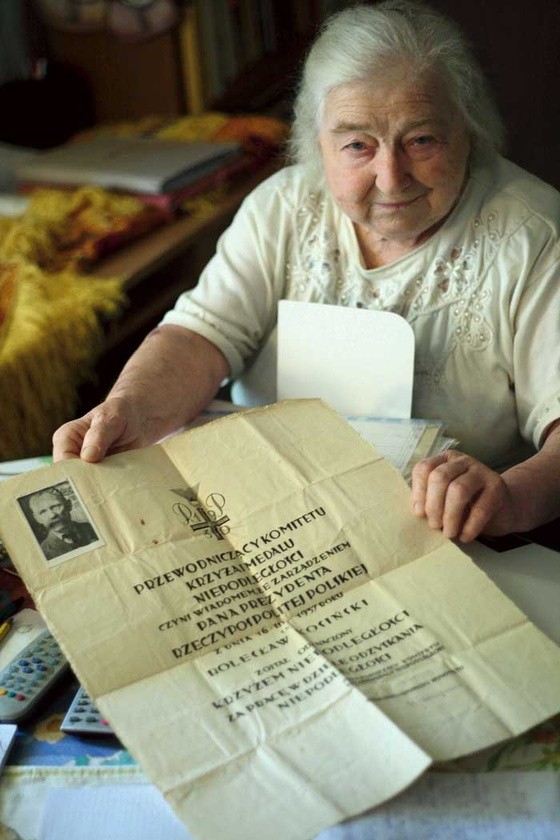 PRZEWODNICZĄCY KOMITETU
KRZYŻA I MEDALU
NIEPODLEGŁOŚCI
CZYNI WIADOMEM ŻE ZARZĄDZENIEM
PANA PREZYDENTA
RZECZYPOSPOLITEJ POLSKIEJ
Z DNIA 1937 ROKU
BOLESŁAW
ZOSTAŁ ODZNACZONY
KRZYŻEM NIEPODLEGŁOŚCI
ZA PRACĘ W DZIELE ODZYSKANIA
NIEPODLEGŁOŚCI